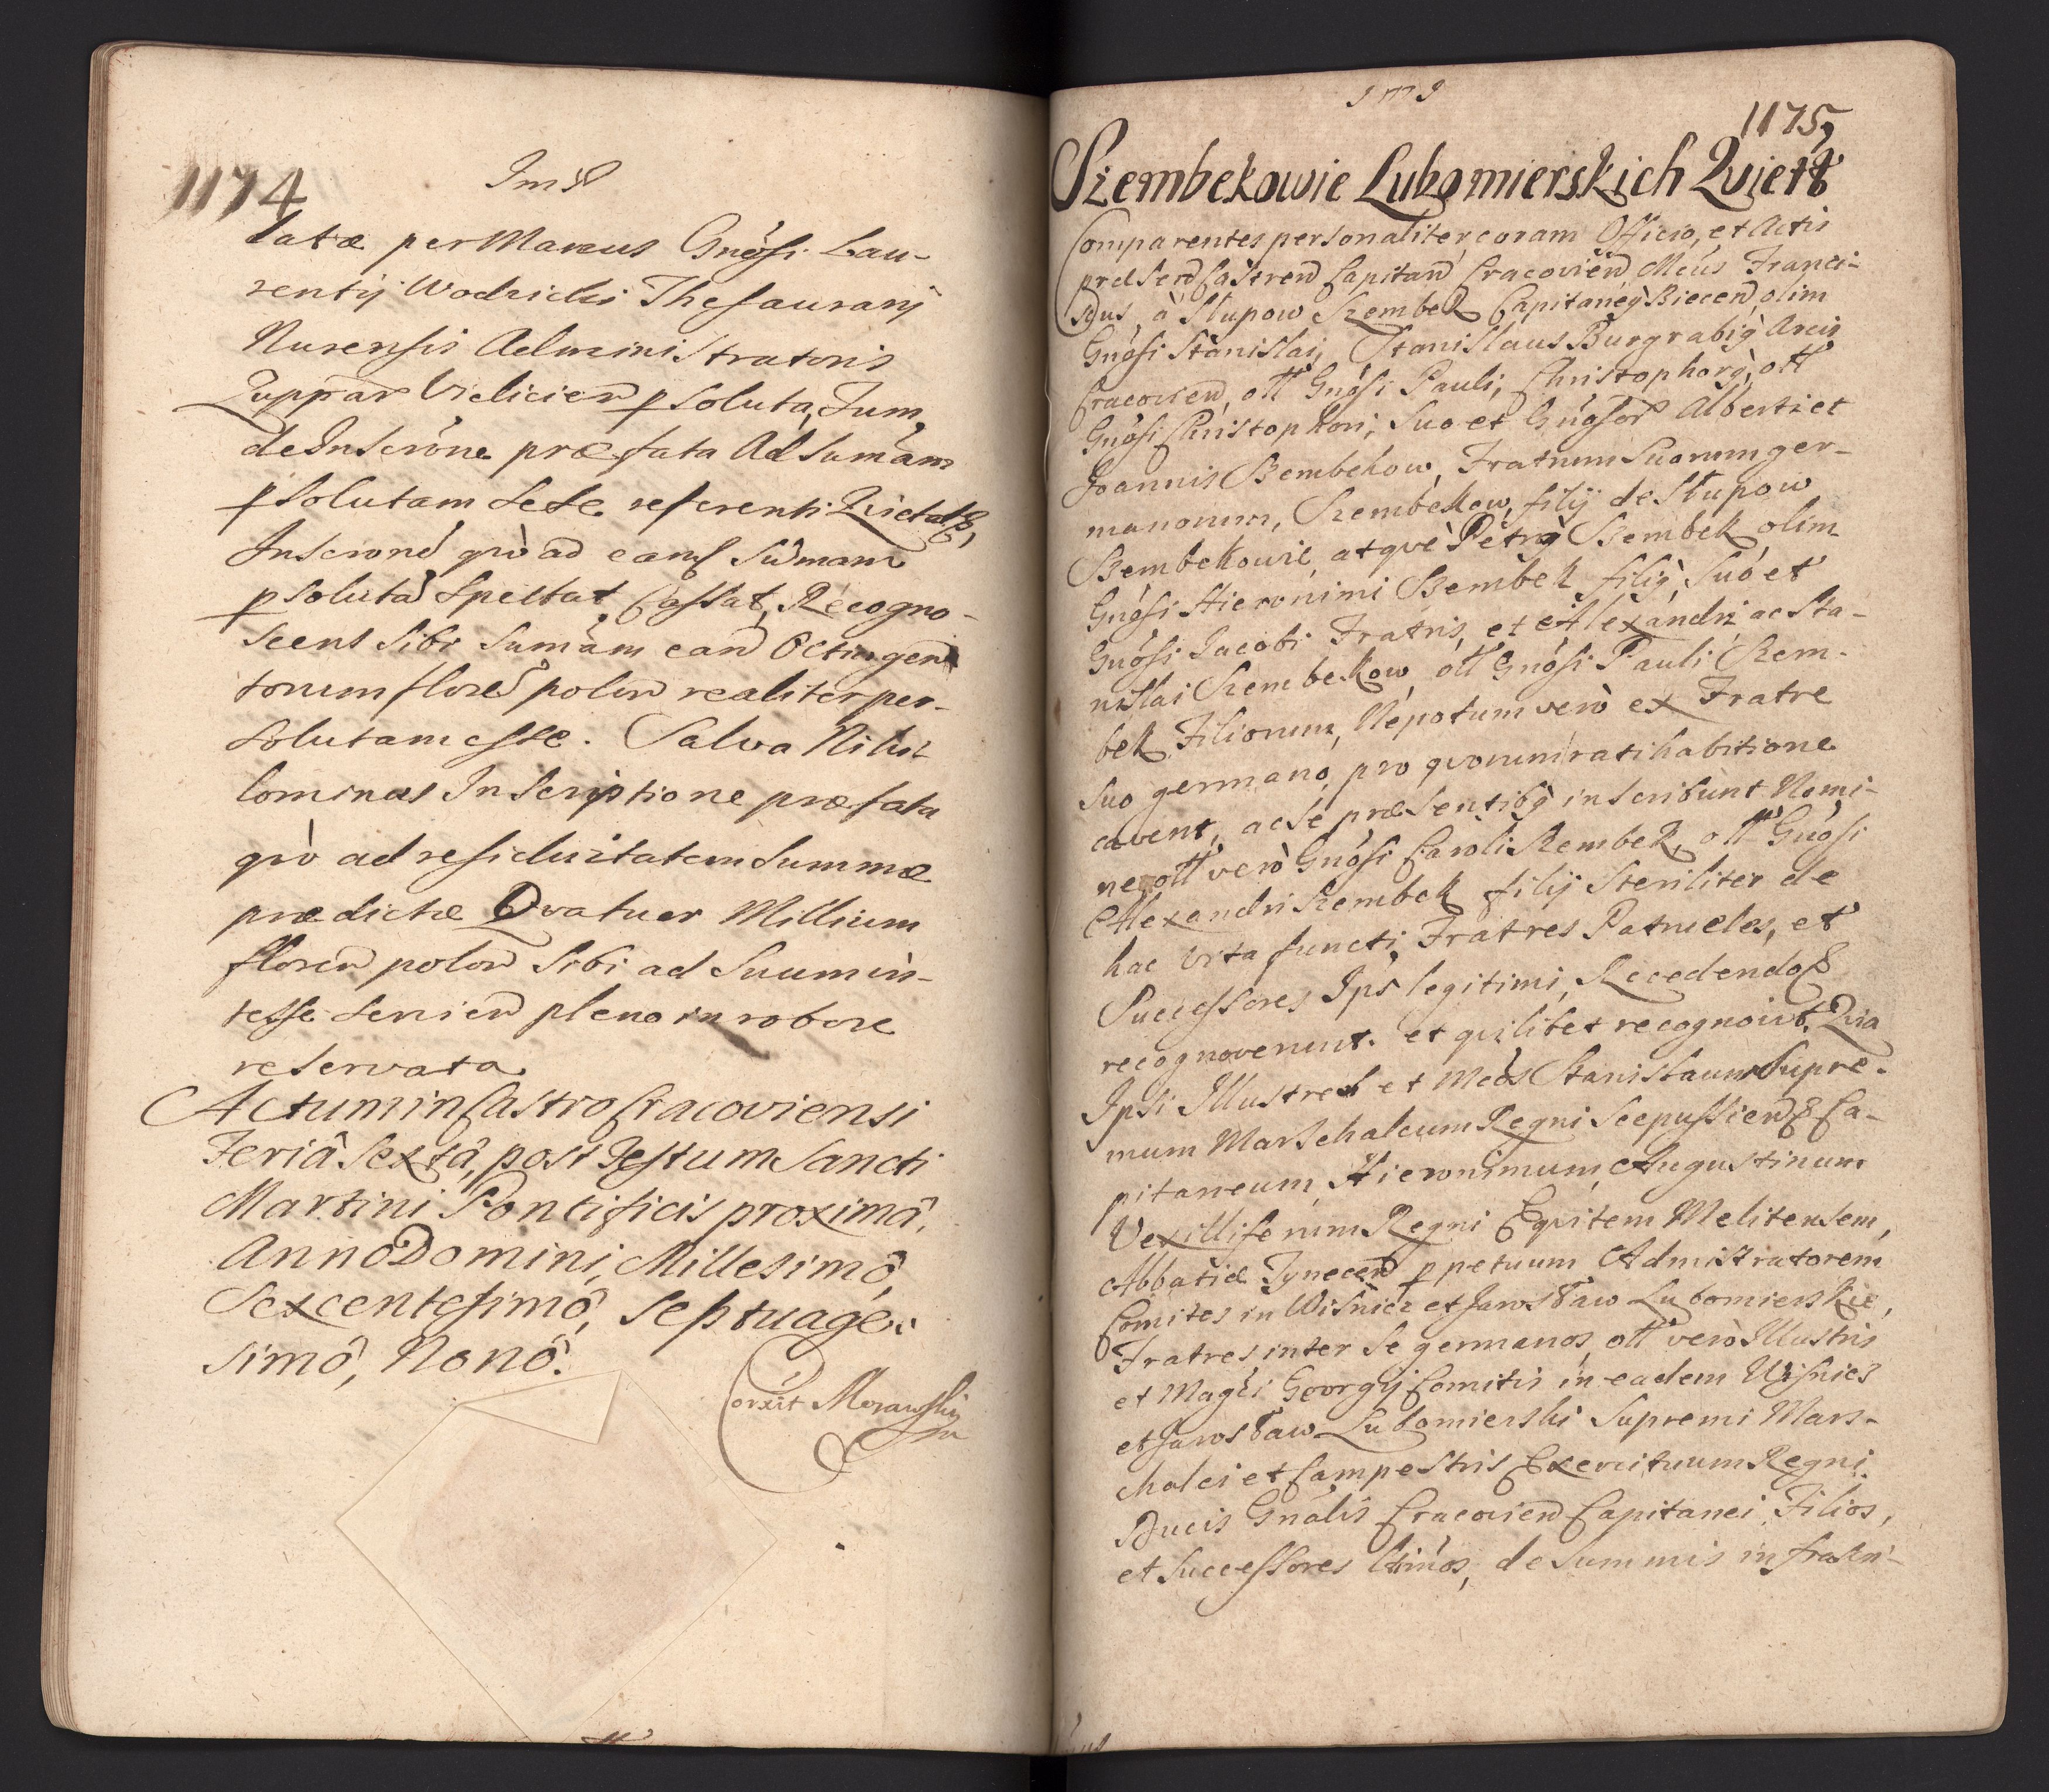 1174
datæ per Manus Gnosi Lau-
rentij Wodzicki Thesaurarij
Nurensis Administratoris
Zuppar Vielicien psoluta, Tum
de Inscrōne præfata Ad Sumam
psolutam sese referenti Qvietat
Inscrōne qvò ad eand Sumam
psolutā Spectat, Cassat, Recogno-
scens Sibi Sumam eand Octingen
torum floren polon realiter per-
solutam esse. Salva Nihi-
lominus Inscriptione præfata
qvò ad residuitatem Summæ
prædictæ Qvatuor Millium
floren polon Sibi ad Suum in-
tesse servien pleno in robore
reservata
Actum in Castro Cracoviensi
Feriâ Sextâ, post Festum Sancti
Martini Pontificis proximâ.
Annô Domini, Millesimô,
Sexcentesimô, Septuage-
simô, Nonô.
Corxit Morawski
1175
Szembekowie Lubomierskich Qviett
Comparentes personaliter coram Officio, et Actis
præsen Castren Capitan Cracovien Mcus Franci-
scus à Słupow Szembek Capitaneq Biecen, olim
Gnosi Stanislai, Stanislaus Burgrabiq Arcis
Cracovien, oll Gnosi Pauli, Christophorq, oll
Gnosi Christophori, Suo et Gnosor Alberti et
Joannis Szembekow, Fratrum Suorum ger-
manorum, Szembekow, filij de Słupow
Szembekowie, atqve Petrq Szembek olim
Gnosi Hieronimi Szembek filiq, Suo et
Gnosi Jacobi Fratris, et Alexandri ac Sta-
nislai Szembekow, oll Gnosi Pauli Szem-
bek Filiorum, Nepotum verò ex Fratre
Suo germano, pro qvorum ratihabitione
cavent, ac se præsentibq inscribunt Nomi-
ne, oll verò Gnosi Caroli Szembek, oll Gnosi
Alexandri Szembek filij Steriliter de
hac vita functi, Fratres Patrueles, et
Successores Ips legitimi, Recedendo
recognoverunt. et qvilibet recognovit. Qvia
Ipsi Illustres et Mcos Stanislaum Supre-
mum Marschalcum Regni Scepussien Ca-
pitaneum, Hieronimum, Augustinum
Vexilliferum Regni Eqvitem Melitensem,
Abbatiæ Tynecen ppetuum Admistratorem
Comites in Wisnicz et Jarosław Lubomierskie,
Fratres inter se germanos, oll verò Illustris
et Magci Georgij Comitis in eadem Wisnicz
et Jarosław Lubomierski Supremi Mars-
chalci et Campestris Exercituum Regni
Ducis Gnalis Cracovien Capitanei Filios,
et Successores ltimos, de Summis infrascri-